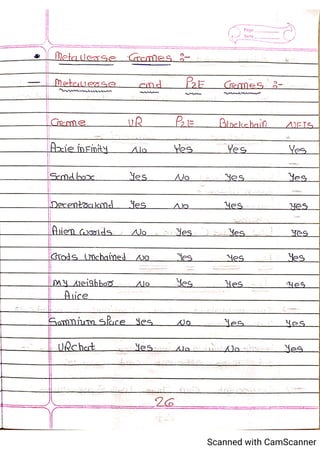 Page:
Date:
• Metaverse Games :-
— Metaverse and P2E Games :-
Game VR P2E Blockchain NFTS
Axie infinity No Yes Yes Yes
Sandbox Yes No Yes Yes
Decentraland Yes No Yes Yes
Alien worlds No Yes Yes Yes
Gods Unchained No Yes Yes Yes
My Neighbor No Yes Yes Yes
Alice
Somnium Space Yes No Yes Yes
VRchat Yes No No Yes
26
Scanned with CamScanner